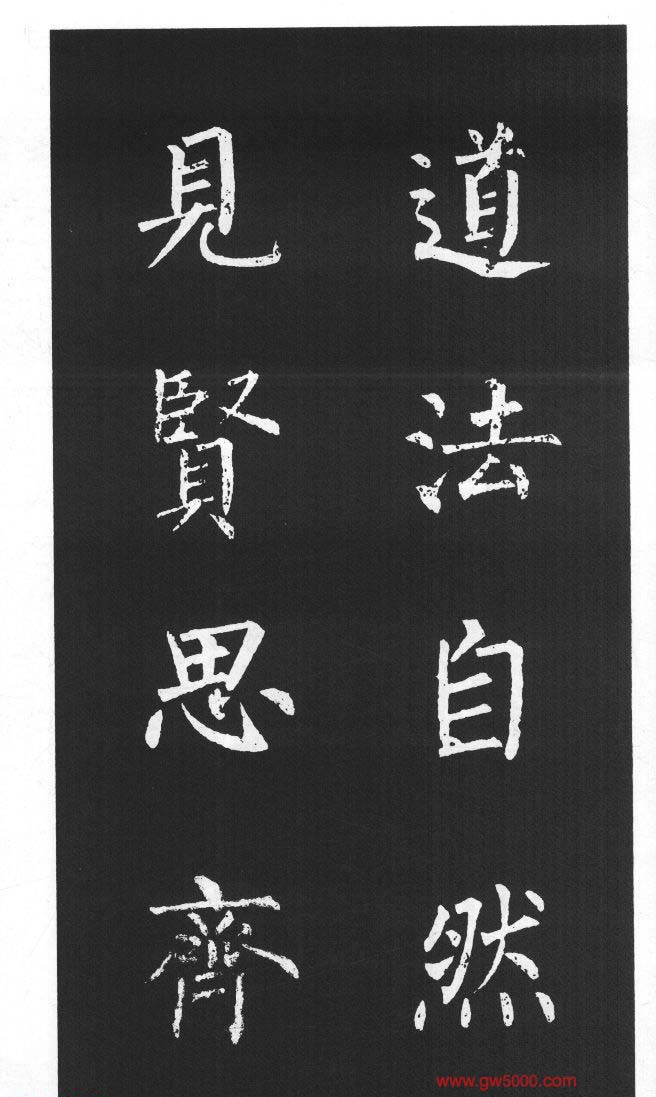 道法自然
見賢思齊
www.gw5000.com